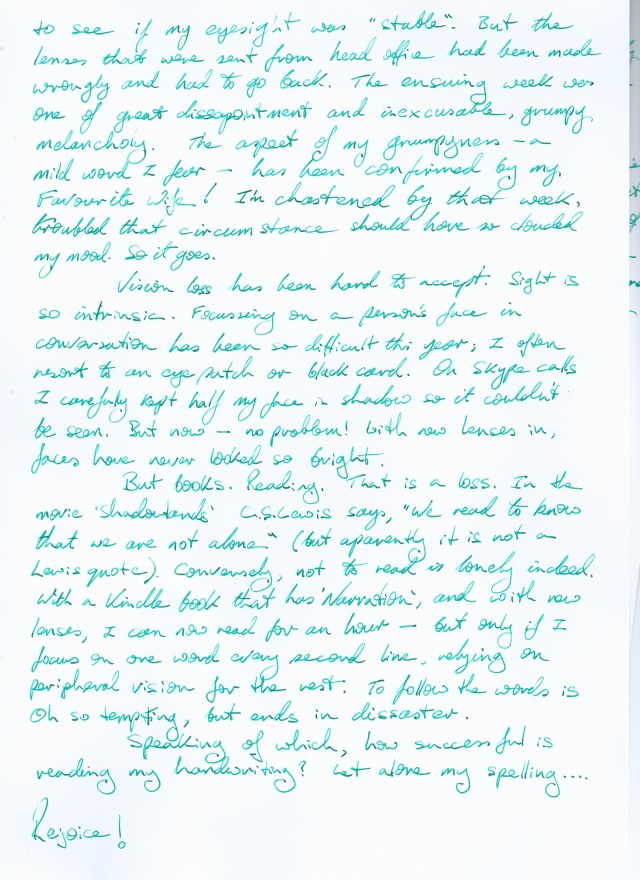 to see if my eyesight was "stable". But the
lenses that were sent from head office had been made
wrongly and had to go back. The ensuing week was
one of great dissapointment and inexcusable, grumpy
melancholy. The aspect of my grumpyness – a
mild word I fear – has been confirmed by my
Favourite Wife! I'm chastened by that week,
troubled that circumstance should have so clouded
my mood. So it goes.
Vision loss has been hard to accept. Sight is
so intrinsic. Focussing on a person's face in
conversation has been so difficult this year; I often
resort to an eye patch or black card. On Skype calls
I carefully kept half my face in shadow so it couldn't
be seen. But now – no problem! With new lenses in,
faces have never looked so bright.
But books. Reading. That is a loss. In the
movie 'Shadowlands' C.S. Lewis says, "We read to know
that we are not alone" (but aparently it is not a
Lewis quote). Conversely, not to read is lonely indeed.
With a Kindle book that has 'Narration', and with new
lenses, I can now read for an hour – but only if I
focus on one word every second line, relying on
peripheral vision for the rest. To follow the words is
Oh so tempting, but ends in dissaster.
Speaking of which, how successful is
reading my handwriting? Let alone my spelling....
Rejoice!